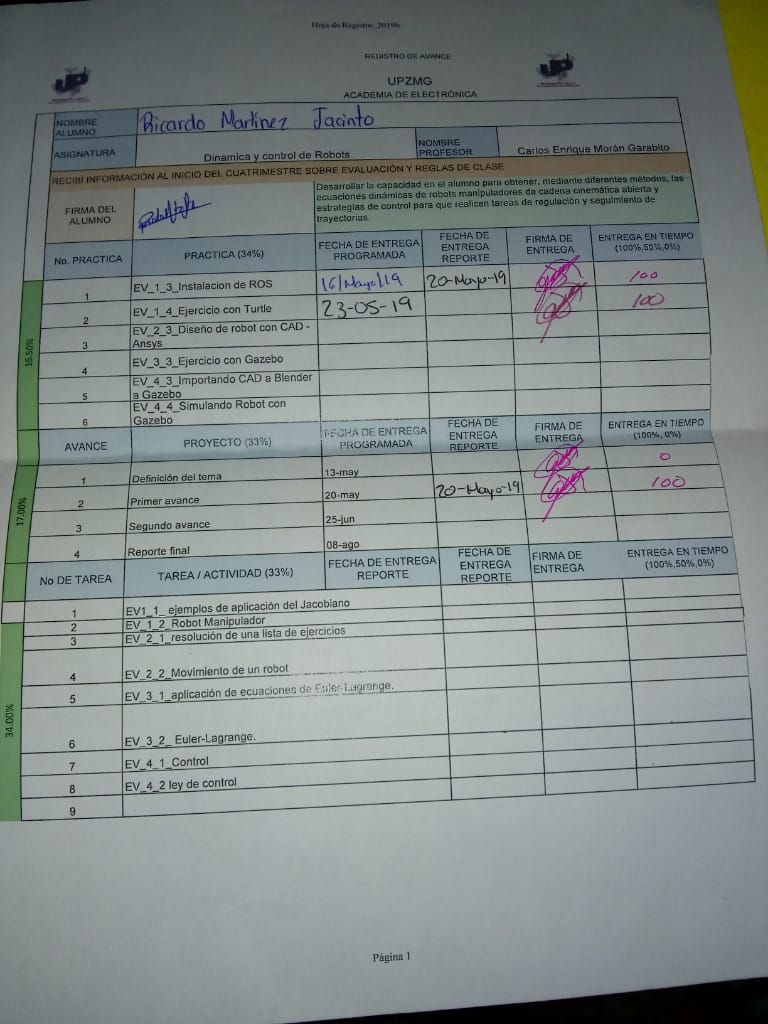 Hoja de Registro_2019b
REGISTRO DE AVANCE
UPZMG
ACADEMIA DE ELECTRÓNICA
NOMBRE ALUMNO Ricardo Martinez Jacinto
ASIGNATURA Dinamica y control de Robots NOMBRE PROFESOR Carlos Enrique Morán Garabito
RECIBÍ INFORMACIÓN AL INICIO DEL CUATRIMESTRE SOBRE EVALUACIÓN Y REGLAS DE CLASE
FIRMA DEL ALUMNO
Desarrollar la capacidad en el alumno para obtener, mediante diferentes métodos, las
ecuaciones dinámicas de robots manipuladores de cadena cinemática abierta y
estrategias de control para que realicen tareas de regulación y seguimiento de
trayectorias.
No. PRACTICA PRACTICA (34%) FECHA DE ENTREGA PROGRAMADA FECHA DE ENTREGA REPORTE FIRMA DE ENTREGA ENTREGA EN TIEMPO (100%,50%,0%)
16.50%
1 EV_1_3_Instalacion de ROS 16/Mayo/19 20-Mayo-19 100
2 EV_1_4_Ejercicio con Turtle 23-05-19 100
3 EV_2_3_Diseño de robot con CAD - Ansys
4 EV_3_3_Ejercicio con Gazebo
5 EV_4_3_Importando CAD a Blender a Gazebo
6 EV_4_4_Simulando Robot con Gazebo
AVANCE PROYECTO (33%) FECHA DE ENTREGA PROGRAMADA FECHA DE ENTREGA REPORTE FIRMA DE ENTREGA ENTREGA EN TIEMPO (100%, 0%)
17.00%
1 Definición del tema 13-may 0
2 Primer avance 20-may 20-Mayo-19 100
3 Segundo avance 25-jun
4 Reporte final 08-ago
No DE TAREA TAREA / ACTIVIDAD (33%) FECHA DE ENTREGA REPORTE FECHA DE ENTREGA REPORTE FIRMA DE ENTREGA ENTREGA EN TIEMPO (100%,50%,0%)
34.00%
1 EV1_1_ ejemplos de aplicación del Jacobiano
2 EV_1_2_Robot Manipulador
3 EV_2_1_resolución de una lista de ejercicios
4 EV_2_2_Movimiento de un robot
5 EV_3_1_aplicación de ecuaciones de Euler-Lagrange.
6 EV_3_2_ Euler-Lagrange.
7 EV_4_1_Control
8 EV_4_2 ley de control
9
Página 1